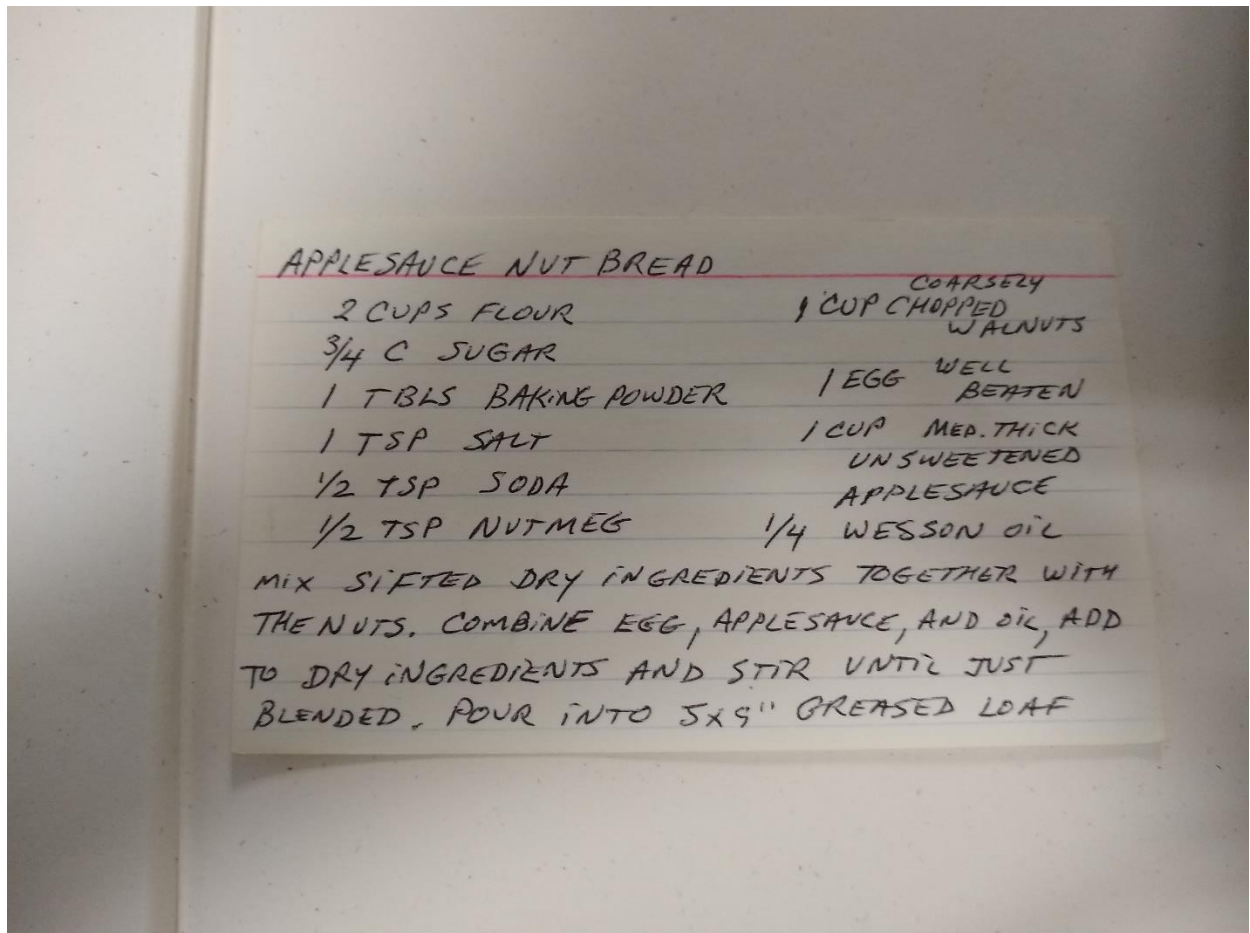 APPLESAUCE NUT BREAD
2 CUPS FLOUR
3/4 C SUGAR
1 TBLS BAKING POWDER
1 TSP SALT
1/2 TSP SODA
1/2 TSP NUTMEG
COARSELY
1 CUP CHOPPED
WALNUTS
1 EGG WELL
BEATEN
1 CUP MED. THICK
UNSWEETENED
APPLESAUCE
1/4 WESSON OIL
MIX SIFTED DRY INGREDIENTS TOGETHER WITH
THE NUTS. COMBINE EGG, APPLESAUCE, AND OIL, ADD
TO DRY INGREDIENTS AND STIR UNTIL JUST
BLENDED. POUR INTO 5X9" GREASED LOAF